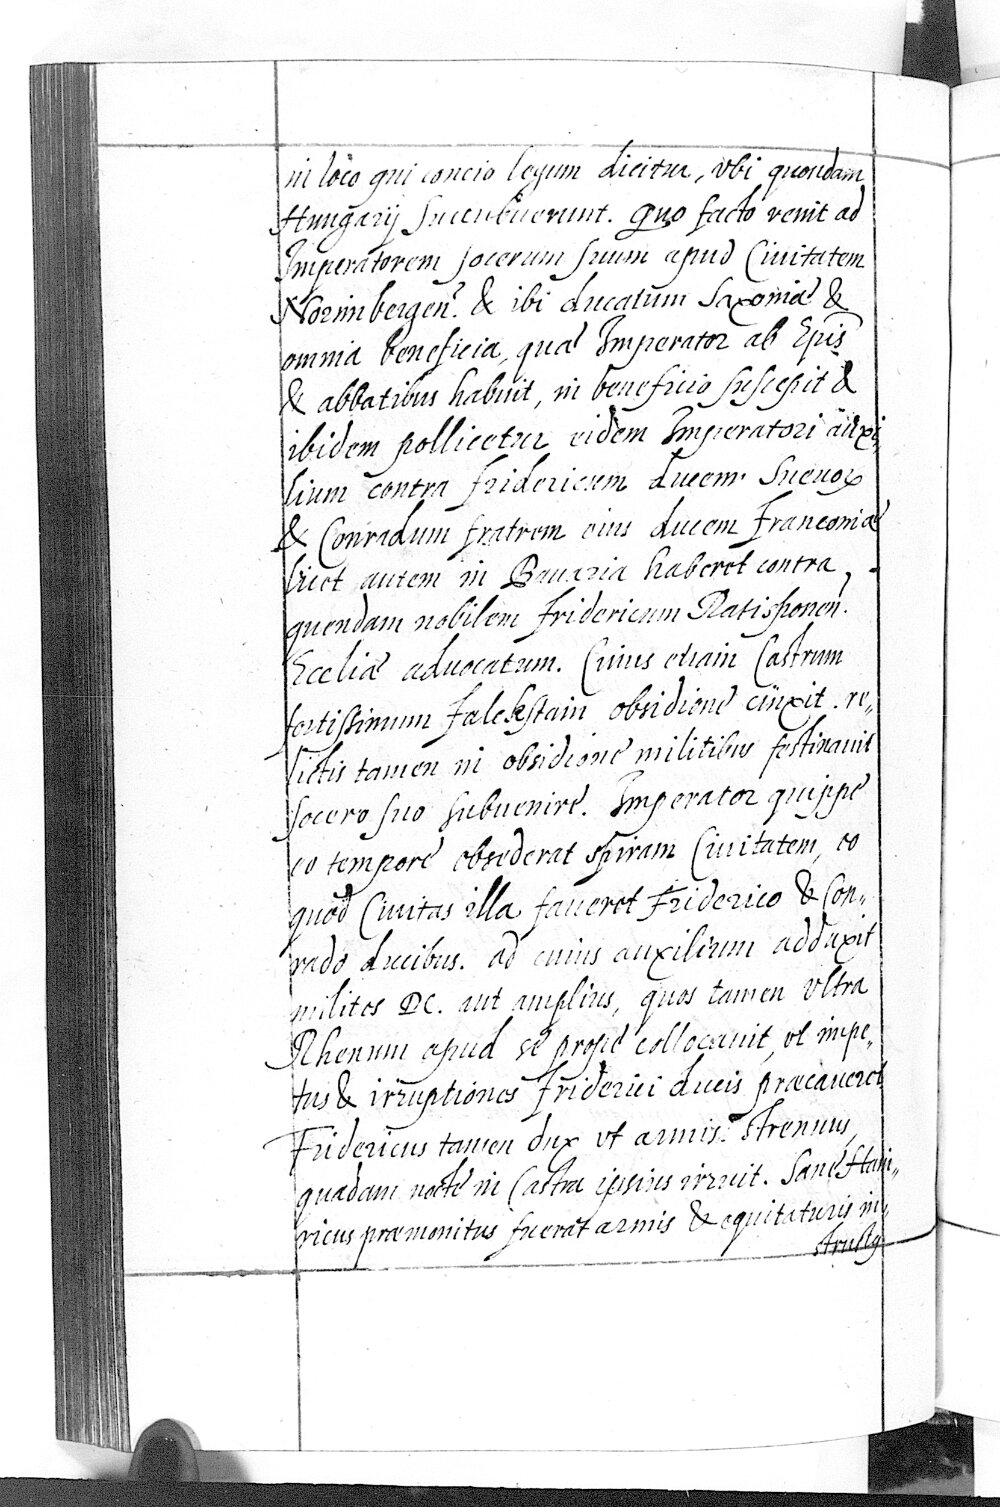 in loco qui concio legum dicitur, vbi quondam
Hungarij succubuerunt. Quo facto venit ad
Imperatorem socerum suum apud Ciuitatem
Norinbergen. & ibi ducatum Saxoniæ &
omnia beneficia, quæ Imperator ab Epis̄
& abbatibus habuit, in beneficio suscepit &
ibidem pollicetur eidem Imperatori auxi,,
lium contra fridericum ducem Sueuoꝝ
& Conradum fratrem eius ducem franconiæ
licet autem in Bauaria haberet contra
quendam nobilem fridericum Ratisponen.
Eccliæ aduocatum. Cuius etiam Castrum
fortissimum falckstain obsidione cinxit. re,,
lictis tamen in obsidione militibus festinauit
socero suo subuenire. Imperator quippe
eo tempore obsederat spiram Ciuitatem, eo
quod Ciuitas illa faueret Friderico & Con,,
rado ducibus. ad cuius auxilium adduxit
milites DC. aut amplius, quos tamen vltra
Rhenum apud se prope collocauit, vt impe,,
tus & irruptiones friderici ducis præcaueret
Fridericus tamen dux vt armis strenuus,
quadam nocte in Castra ipsius irruit. Sane Hain,,
ricus præmonitus fuerat armis & equitaturis in,,
structꝰ